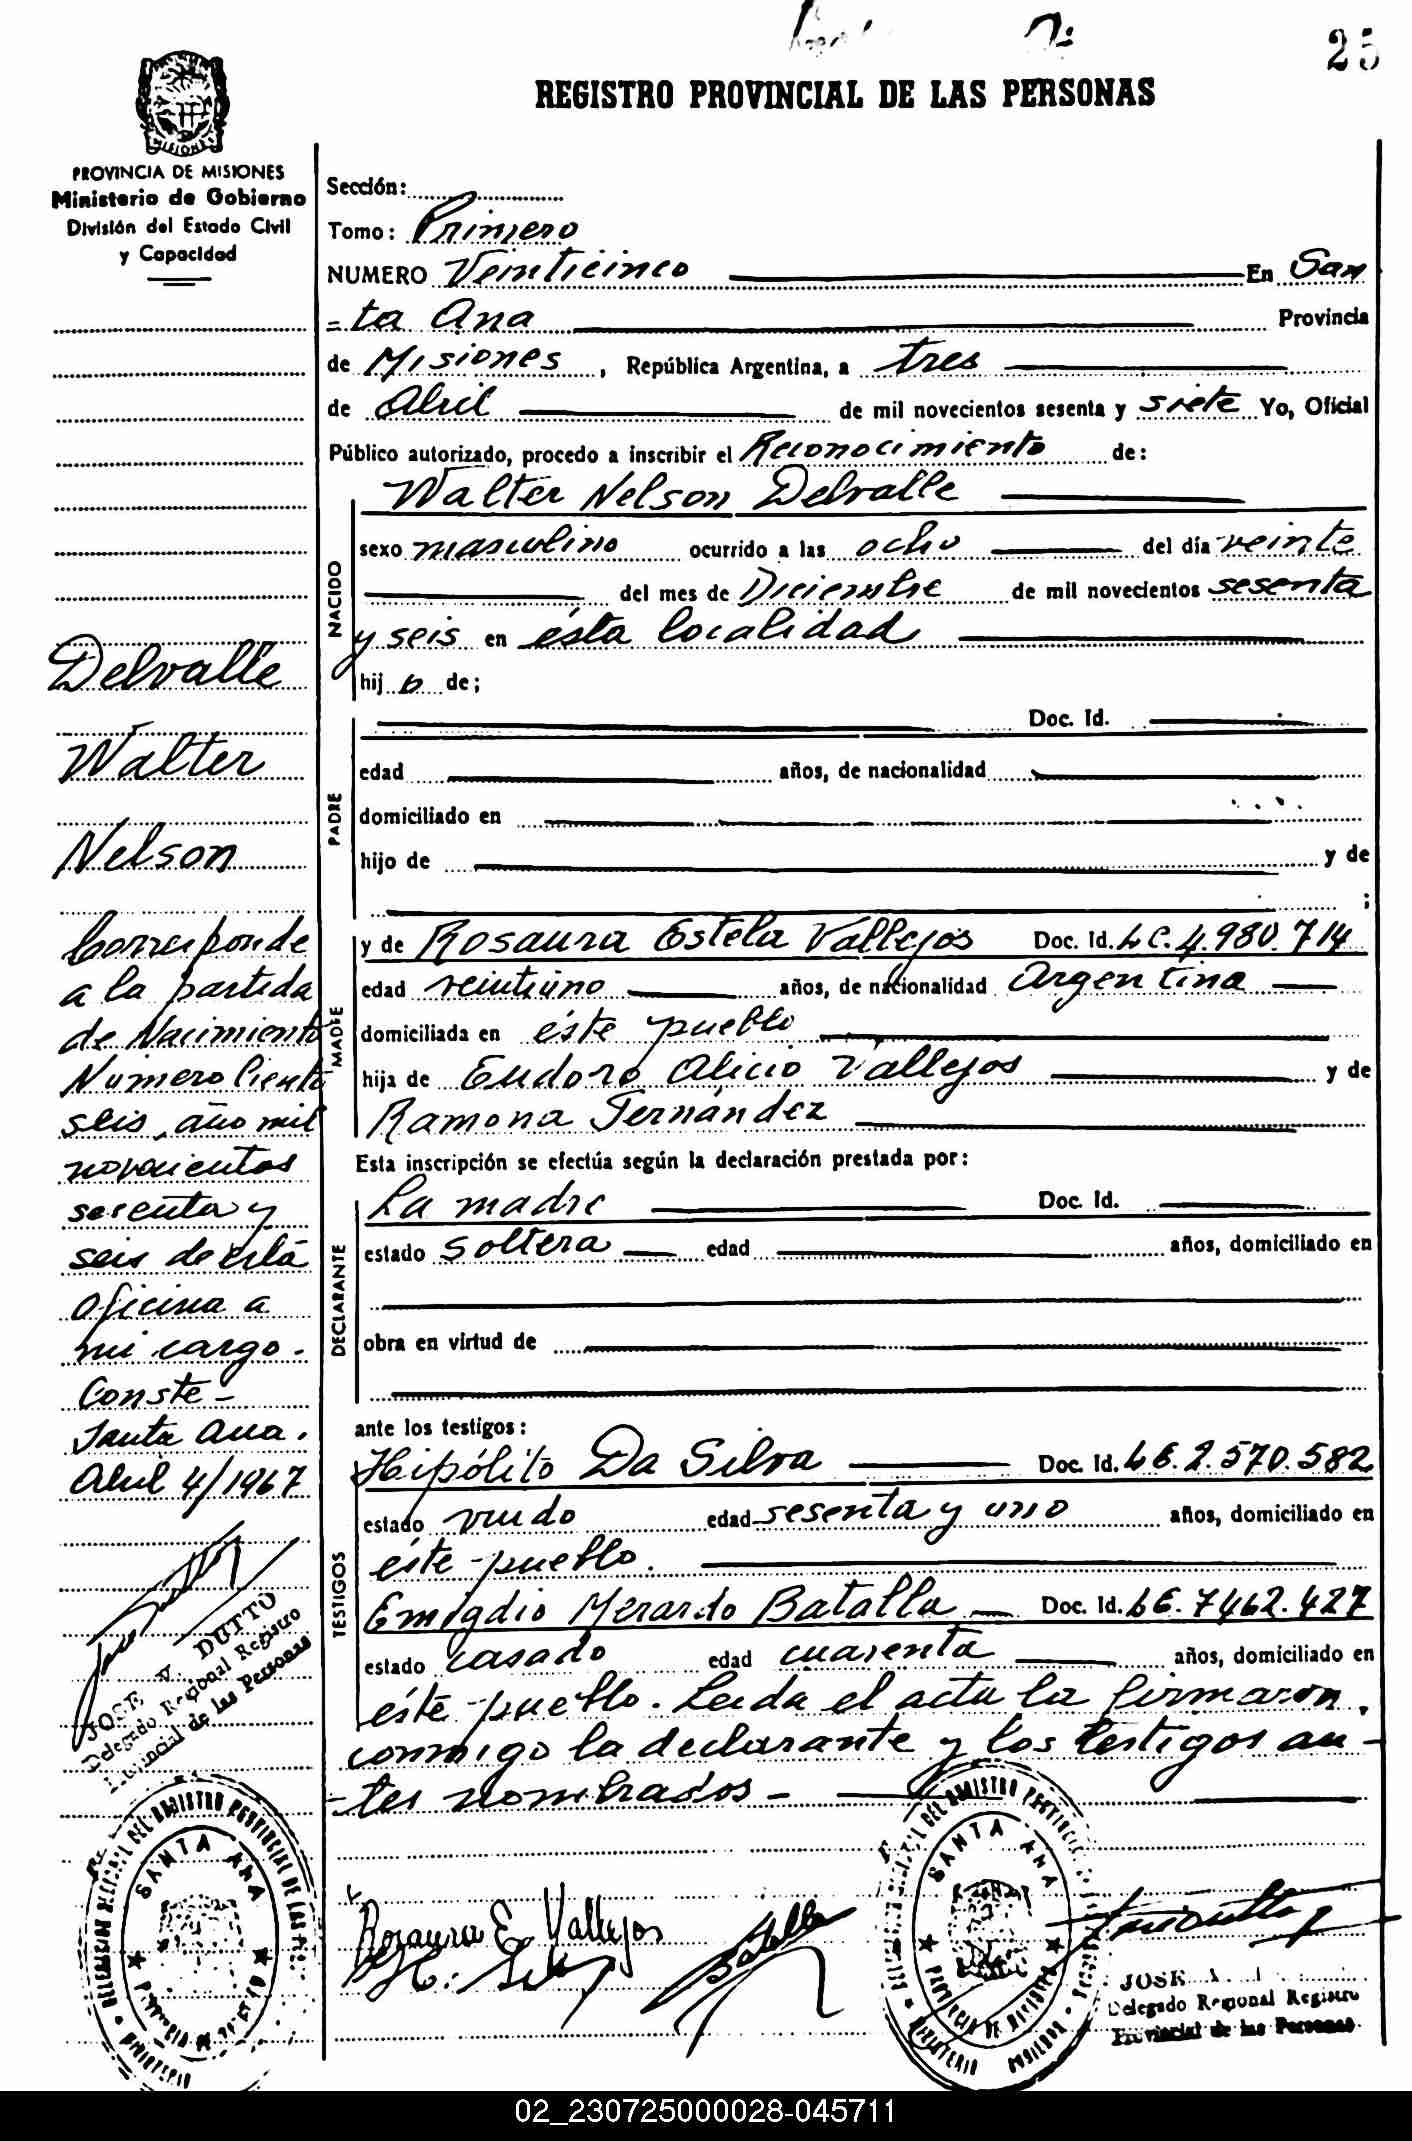 25
REGISTRO PROVINCIAL DE LAS PERSONAS
MISIONES
PROVINCIA DE MISIONES
Ministerio de Gobierno
División del Estado Civil
y Capacidad
Delvalle
Walter
Nelson
Corresponde
a la partida
de Nacimiento
Numero Ciento
seis, año mil
novecientos
sesenta y
seis de ésta
oficina a
mi cargo.
Conste -
Santa Ana.
Abril 4/1967
JOSE V. DUTTO
Delegado Regional Registro
Provincial de las Personas
SANTA ANA
Sección:
Tomo: Primero
NUMERO Veinticinco En San
=ta Ana Provincia
de Misiones, República Argentina, a tres
de Abril de mil novecientos sesenta y siete Yo, Oficial
Público autorizado, procedo a inscribir el Reconocimiento de:
Walter Nelson Delvalle
NACIDO
sexo masculino ocurrido a las ocho del día veinte
del mes de Diciembre de mil novecientos sesenta
y seis en ésta localidad
hijo de;
PADRE
Doc. Id.
edad años, de nacionalidad
domiciliado en
hijo de y de
;
MADRE
y de Rosaura Estela Vallejos Doc. Id. LC. 4.980.714
edad veintiuno años, de nacionalidad Argentina
domiciliada en éste pueblo
hija de Eudoro Alicio Vallejos y de
Ramona Fernández
Esta inscripción se efectúa según la declaración prestada por:
DECLARANTE
La madre Doc. Id.
estado Soltera edad años, domiciliado en
obra en virtud de
ante los testigos:
TESTIGOS
Hipólito Da Silva Doc. Id. LE. 2.570.582
estado viudo edad sesenta y uno años, domiciliado en
éste pueblo.
Emigdio Merardo Batalla Doc. Id. LE. 7462.427
estado casado edad cuarenta años, domiciliado en
éste pueblo. Leida el acta la firmaron,
conmigo la declarante y los testigos an-
-tes nombrados -
Rosaura E. Vallejos
Batalla
SANTA ANA
JOSE
Delegado Regional Registro
Provincial de las Personas
02_230725000028-045711